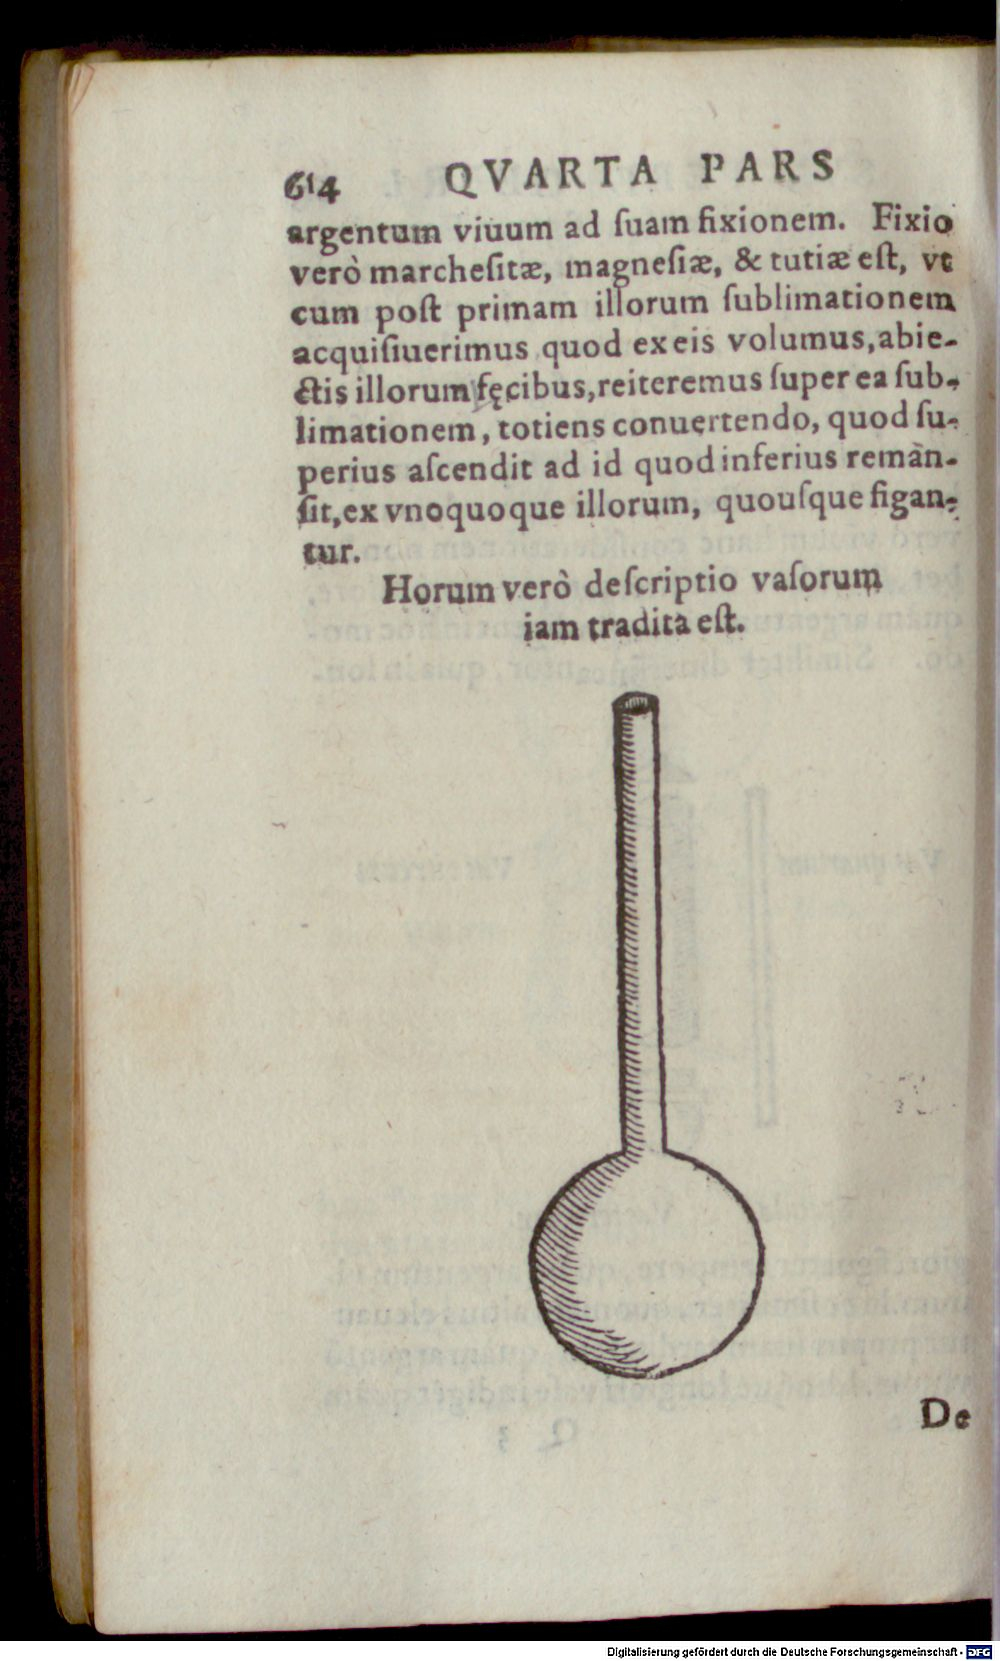 614 QVARTA PARS
argentum viuum ad ſuam fixionem. Fixio
verò marcheſitæ, magneſiæ, & tutiæ eſt, vt
cum poſt primam illorum ſublimationem
acquiſiuerimus quod ex eis volumus, abie-
ctis illorum fęcibus, reiteremus ſuper ea ſub-
limationem, totiens conuertendo, quod ſu-
perius aſcendit ad id quod inferius remàn-
ſit, ex vnoquoque illorum, quouſque figan-
tur.
Horum verò deſcriptio vaſorum
iam tradita eſt.
De
Digitalisierung gefördert durch die Deutsche Forschungsgemeinschaft - DFG